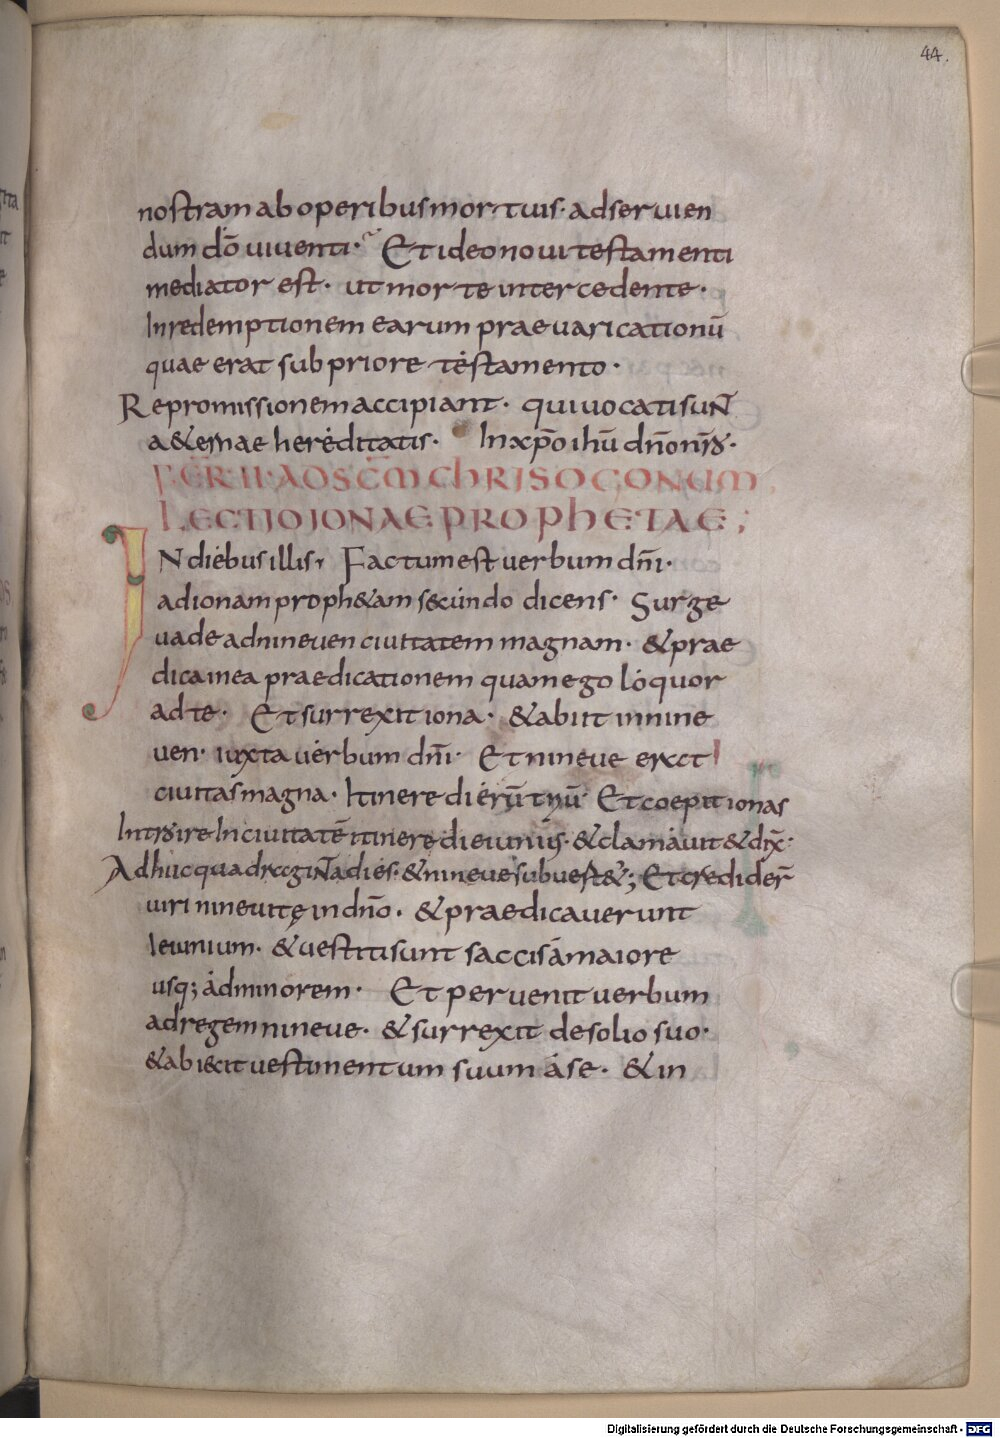 44.
nostram ab operibus mortuis· ad seruien
dum dō uiuenti· Et ideo noui testamenti
mediator est· ut morte intercedente·
In redemptionem earum praeuaricationū
quae erat sub priore testamento·
Repromissionem accipiant· qui uocati suN̄
a&ernae hereditatis· In xp̄o ihū dn̄o nr̄o·
FER̄·II·AD SC̄M ChRISOGONUM
LECTIO IONAE PROPhETAE;
IN diebus illis· Factum est uerbum dn̄i·
ad ionam proph&am secundo dicens· Surge
uade ad nineuen ciuitatem magnam· & prae
dica in ea praedicationem quam ego loquor
ad te· Et surrexit iona· & abiit in nine
uen· iuxta uerbum dn̄i· Et nineue erat
ciuitas magna· Itinere dierū triū· Et coepit ionas
Introire In ciuitatē itinere diei unius· & clamauit & dix̄·
Adhuc quadraginta dies· & nineue subuert&; Et credider̄
uiri nineuitę in dn̄o· & praedicauerunt
Ieiunium· & uestiti sunt saccis a maiore
usq; ad minorem· Et peruenit uerbum
ad regem nineue· & surrexit de solio suo·
& abiecit uestimentum suum a se· & in
Digitalisierung gefördert durch die Deutsche Forschungsgemeinschaft - DFG